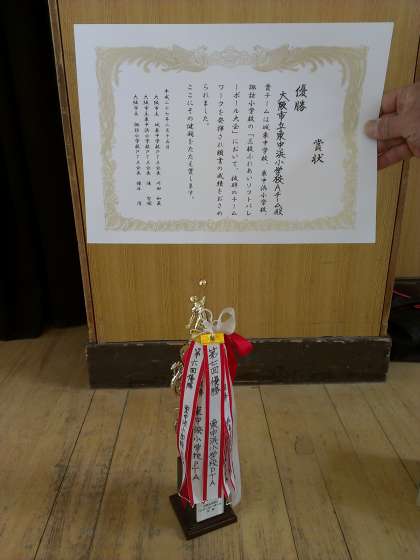 賞状
優勝
大阪市立東中浜小学校Aチーム殿
貴チームは城東中学校、東中浜小学校
諏訪小学校の「三校ふれあいソフトバレ
ーボール大会」において、抜群のチーム
ワークを発揮され頭書の成績をおさめ
られました。
ここにその健闘をたたえ賞します。
平成二十七年
大阪市立 城東中学校PTA会長
大阪市立東中浜小学校PTA会長
大阪市立 諏訪小学校PTA会長
第七回優勝
東中浜小学校PTA
第六回優勝
東中浜小学校PTA